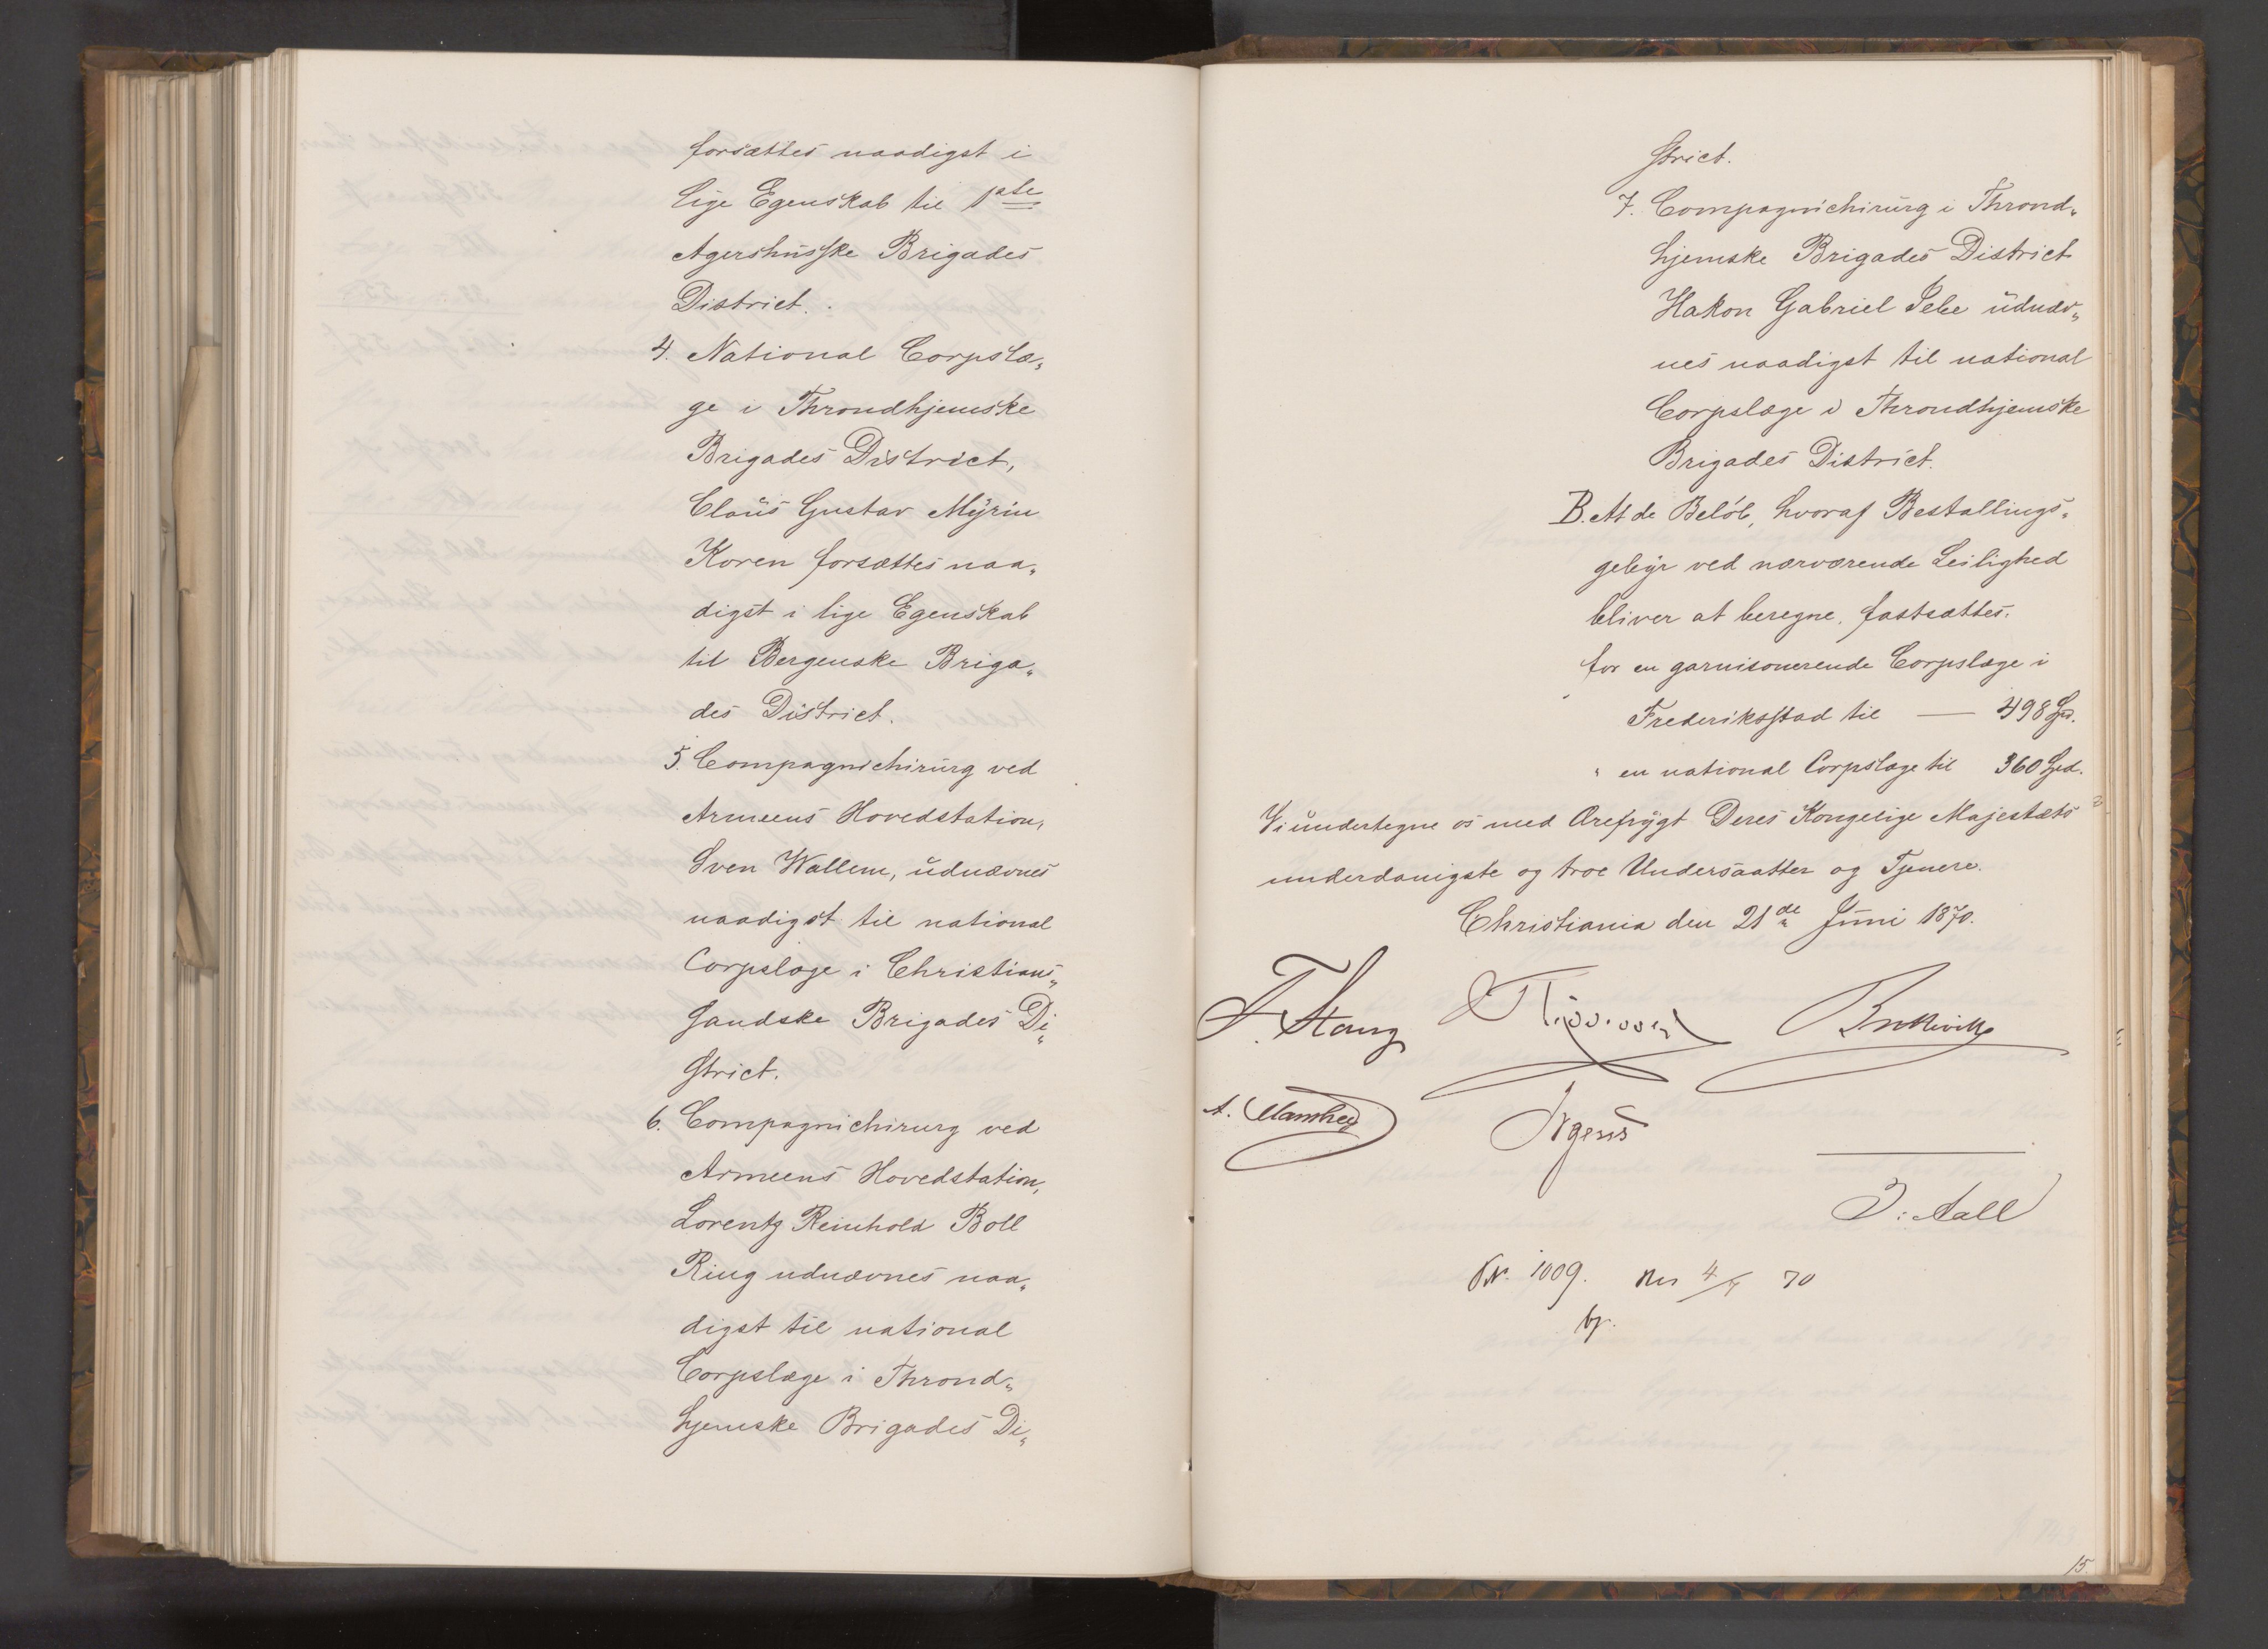 forsættes naadigst i
lige Egenskab til 1ste
Agershusske Brigades
District.
4. National Corpslæ„
ge i Throndhjemske
Brigades District,
Claus Gustav Myrin
Koren forsættes naa„
digst i lige Egenskab
til Bergenske Briga„
des District.
5. Compagnichirurg ved
Armeens Hovedstation,
Sven Wallem, udnævnes
naadigst til national
Corpslæge i Christians„
sandske Brigades Di„
strict.
6. Compagnichirurg ved
Armeens Hovedstation,
Lorentz Reinhold Boll
Ring udnævnes naa„
digst til national
Corpslæge i Thrond„
hjemske Brigades Di„
strict.
7. Compagnichirurg i Thrond„
hjemske Brigades District
Hakon Gabriel Selie udnæv„
nes naadigst til national
Corpslæge i Throndhjemske
Brigades District.
B. At de Beløb, hvoraf Bestallings„
gebyr ved nærværende Leilighed
bliver at beregne, fastsættes.
for en garnisonerende Corpslæge i
Frederiksstad til — 498 Spd.
" en national Corpslæge til 360 Spd.
Vi undertegne os med Ærefrygt Deres Kongelige Majestæts
underdanigste og troe Undersaatter og Tjenere.
Christiania den 21de Juni 1870.
F. Stang
Bretteville
A. Manthey
Irgens
J. Aall
No. 1009. 4/7 70
15.